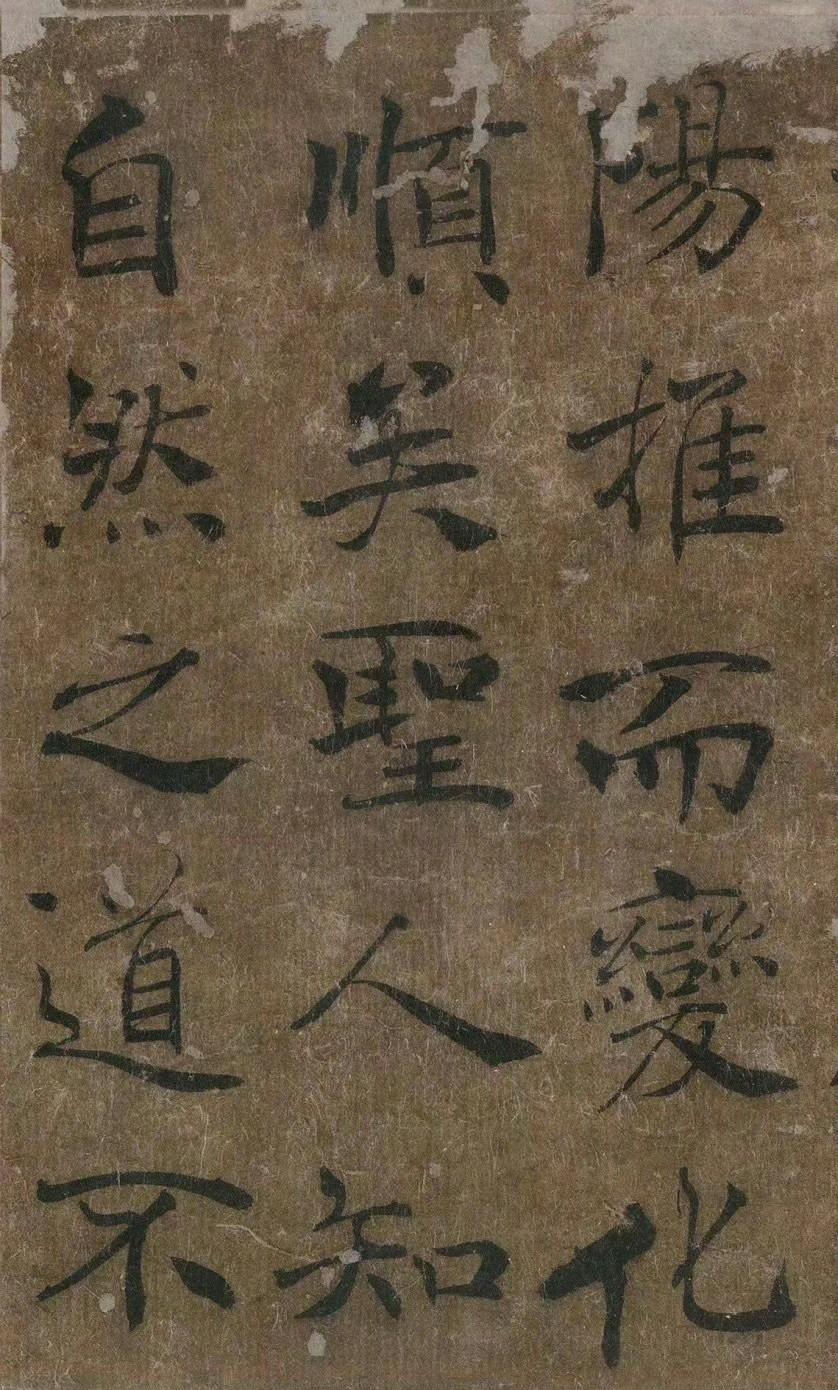 陽推而變化
順矣聖人知
自然之道不